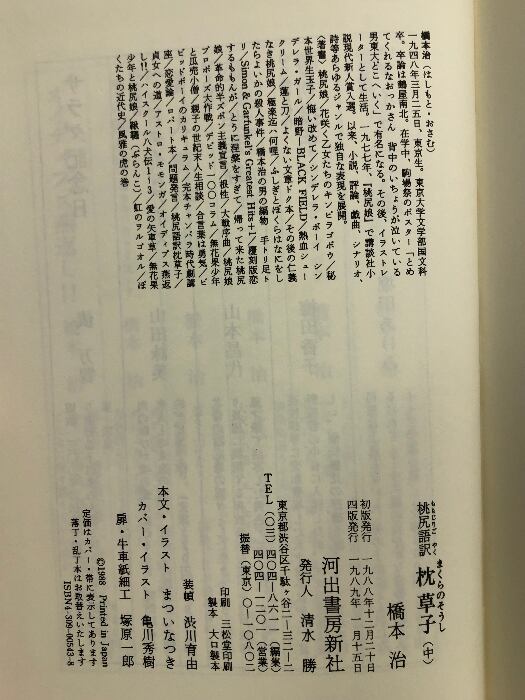 橋本治(はしもと・おさむ)
一九四八年三月二五日、東京生。東京大学文学部国文科
卒。卒論は鶴屋南北。在学中、駒場祭のポスター「とめ
てくれるなおっかさん 背中のいちょうが泣いている
男東大どこへいく」で有名になる。その後、イラストレ
ーターとして生活。一九七七年、『桃尻娘』で講談社小
説現代新人賞入選。以来、小説、評論、戯曲、シナリオ、
詩等あらゆるジャンルで独自な表現を展開。
〈著書〉桃尻娘/花咲く乙女たちのキンピラゴボウ/秘
本世界生玉子/悔い改めて/シンデレラ・ボーイ シン
デレラ・ガール/暗野―BLACK FIELD/熱血シュー
クリーム/蓮と刀/よくない文章ドク本/その後の仁義
なき桃尻娘/極楽迄ハ何哩/ふしぎとぼくらはなにをし
たらよいかの殺人事件/橋本治の男の編物 手トリ足ト
リ/Simon & Garfunkel's Greatest Hits+1/覆刻版恋
するももんが/とうに涅槃をすぎて/帰って来た桃尻
娘/革命的半ズボン主義宣言/根性/大戦序曲/桃尻娘
プロポーズ大作戦/デビッド100コラム/無花果少年
と瓜売小僧/親子の世紀末人生相談/合言葉は勇気/ビ
ビッドボーイのカリキュラム/完本チャンバラ時代劇講
座/恋愛論/ロバート本/問題発言/桃尻語訳枕草子/
貞女への道/アストロ・モモンガ/オイディプス燕返
し!!/ハイスクール八犬伝1-3/愛の矢車草/無花果
少年と桃尻娘/鞦韆(ぶらんこ)/虹のヲルゴオル/ぼ
くたちの近代史/風雅の虎の巻
桃尻語訳
ももじりご やく
枕草子(中)
まくらのそうし
橋本 治
初版発行 一九八八年十二月二十日
四版発行 一九八九年 一月十五日
河出書房新社
発行人 清水 勝
東京都渋谷区千駄ヶ谷二―三二―二
TEL(〇三)四〇四―八六一一(編集)
四〇四―一二〇一(営業)
振替(東京)〇―一〇八〇二
印刷 三松堂印刷
製本 大口製本
装幀 渋川育由
本文・イラスト まついなつき
カバー・イラスト 亀川秀樹
扉・牛車紙細工 塚原一郎
©1988 Printed in Japan
定価はカバー・帯に表示してあります
落丁・乱丁本はお取替えいたします
ISBN4-309-00543-8